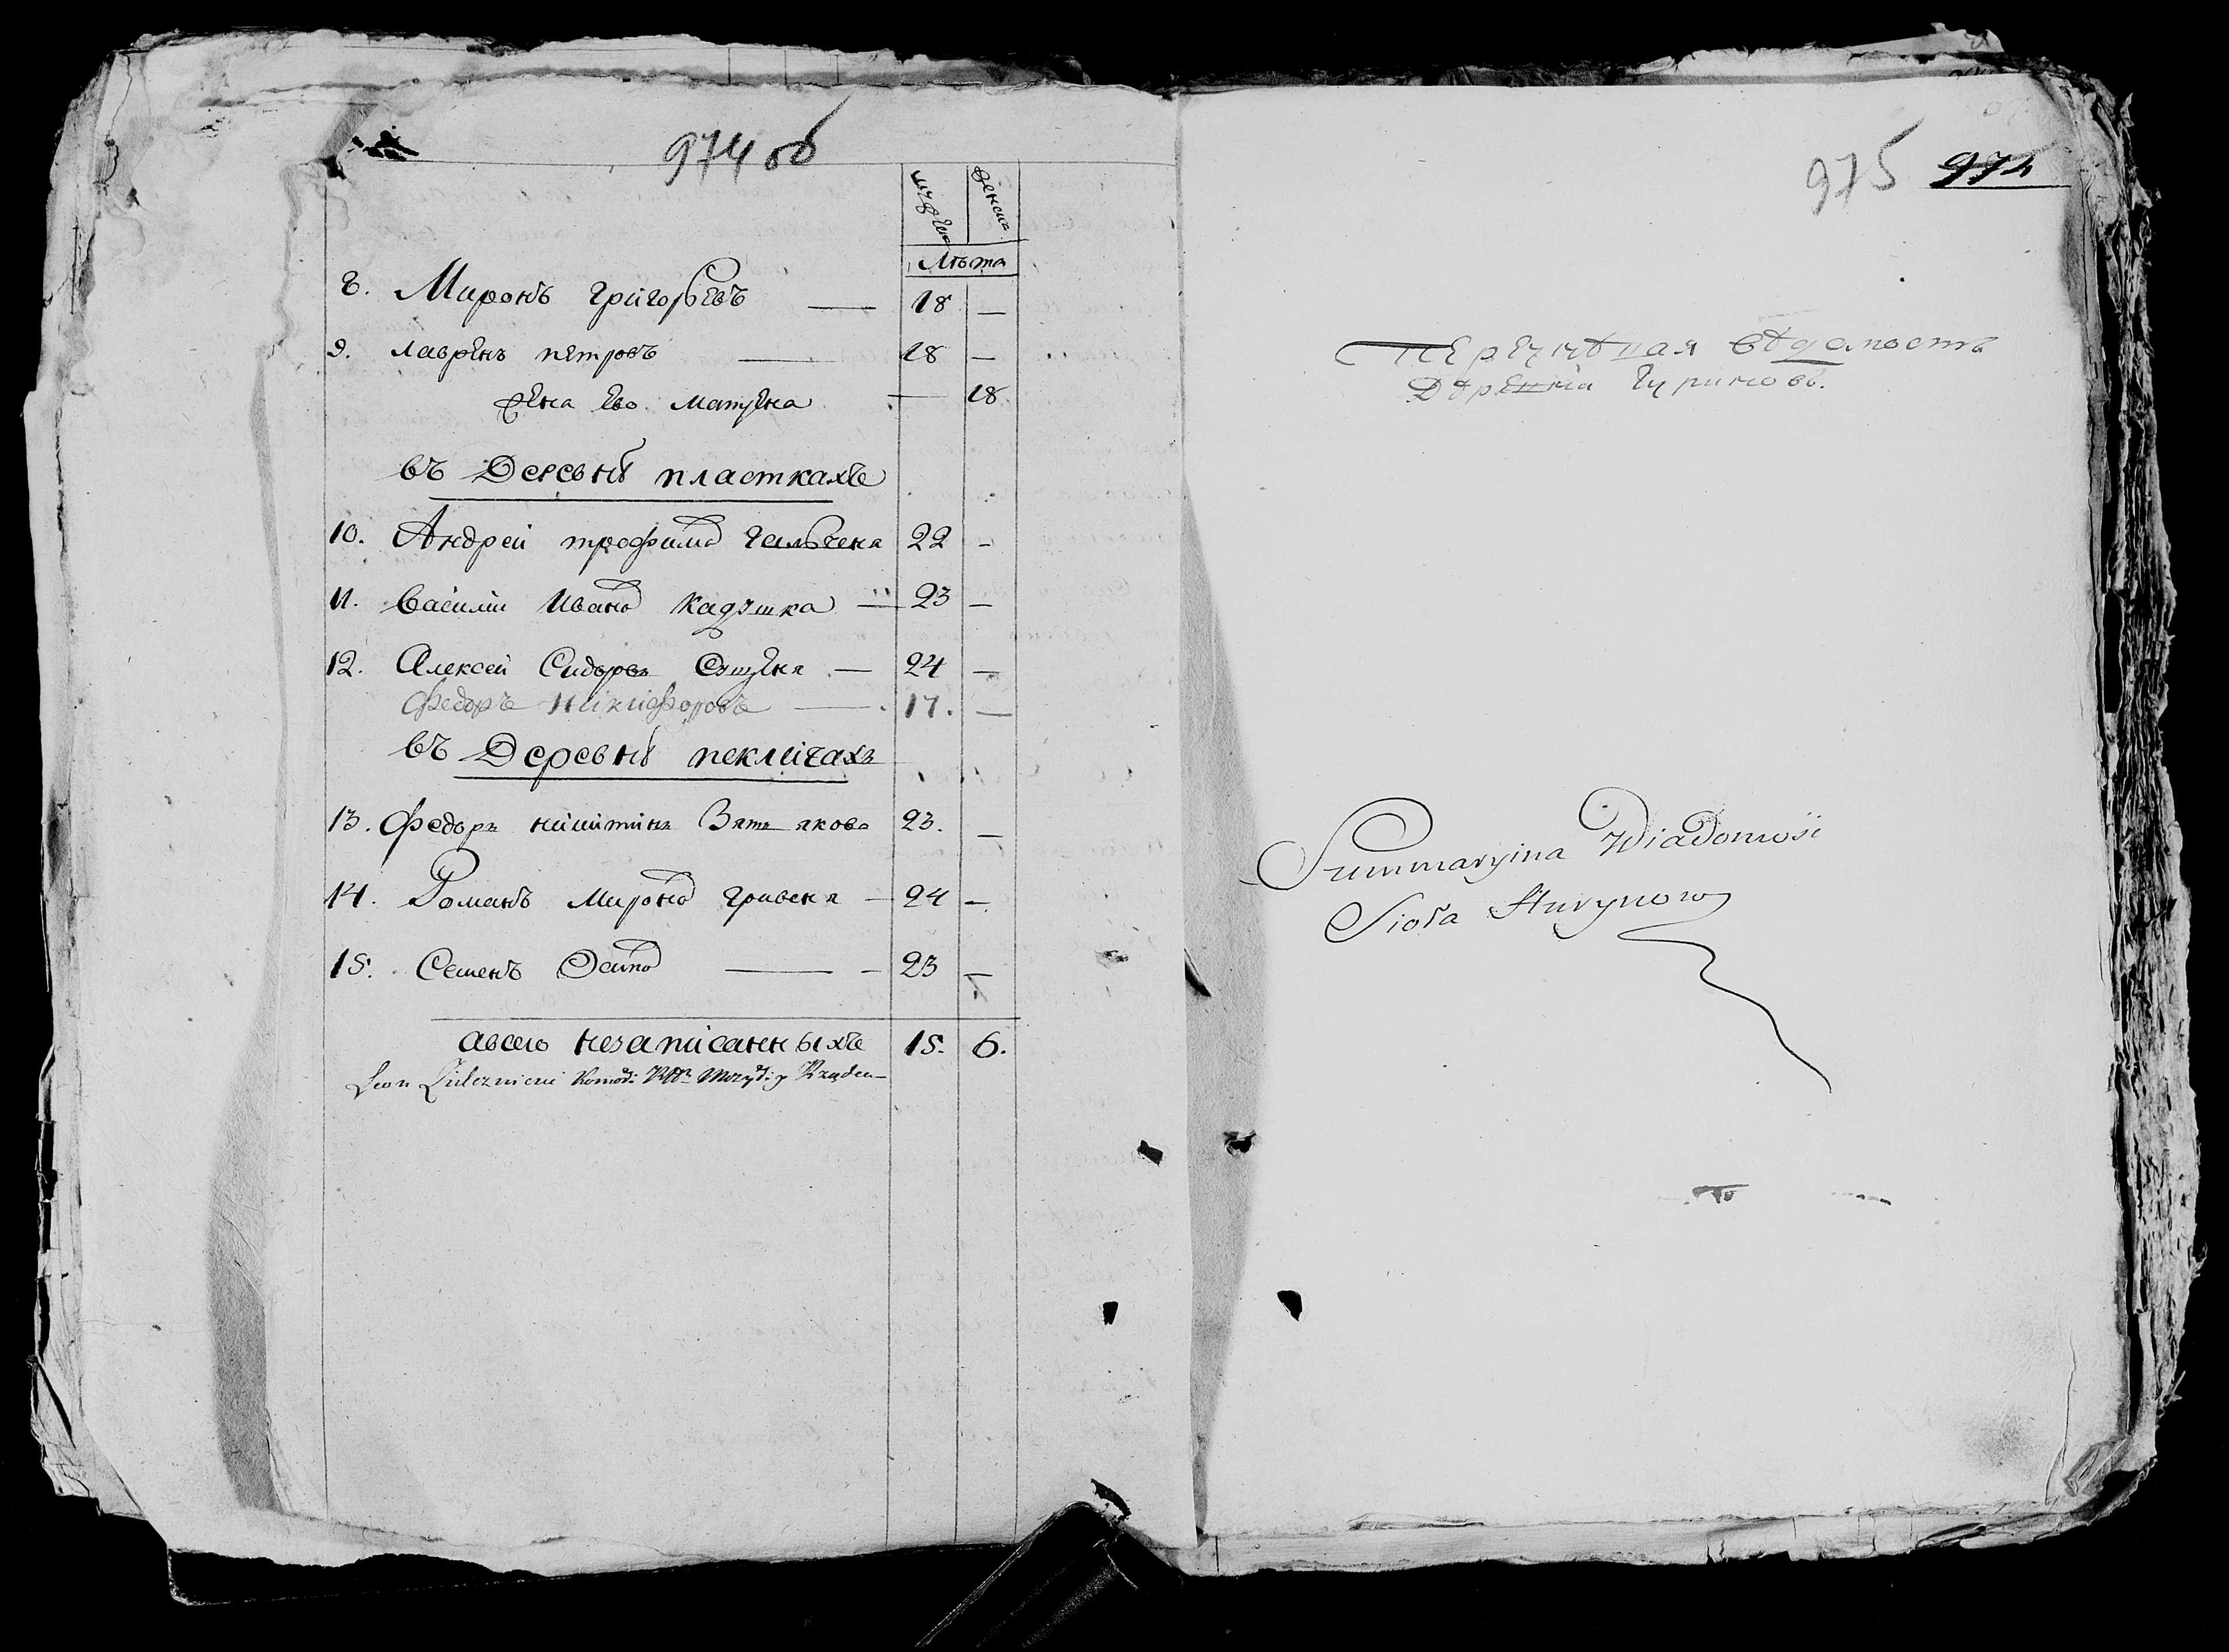 974 об
мужеска женска
Лѣта
8. Миронъ Григорьевъ — 18 —
9. Лавренъ петровъ — 18 —
жена Ево Матрена — 18
въ Деревнѣ пласткахъ
10. Андрей трофимо 22 -
11. Василіи Ивано Кадушка — 23 —
12. Алексеи Сидоровъ — 24 —
федоръ Никифоровъ — 17. —
въ Деревнѣ пекличахъ
13. Федоръ никитинъ Зять якова 23. —
14. Романъ Мироно гривеня — 24 —
15. Семенъ Осипо — 23 —
авсего незаписанныхъ 15. 6.
Leon
975 974
Перечневая вѣдомость
Деревни Гуриновъ.
Summaryina Wiadomość
Sioła Hurynow